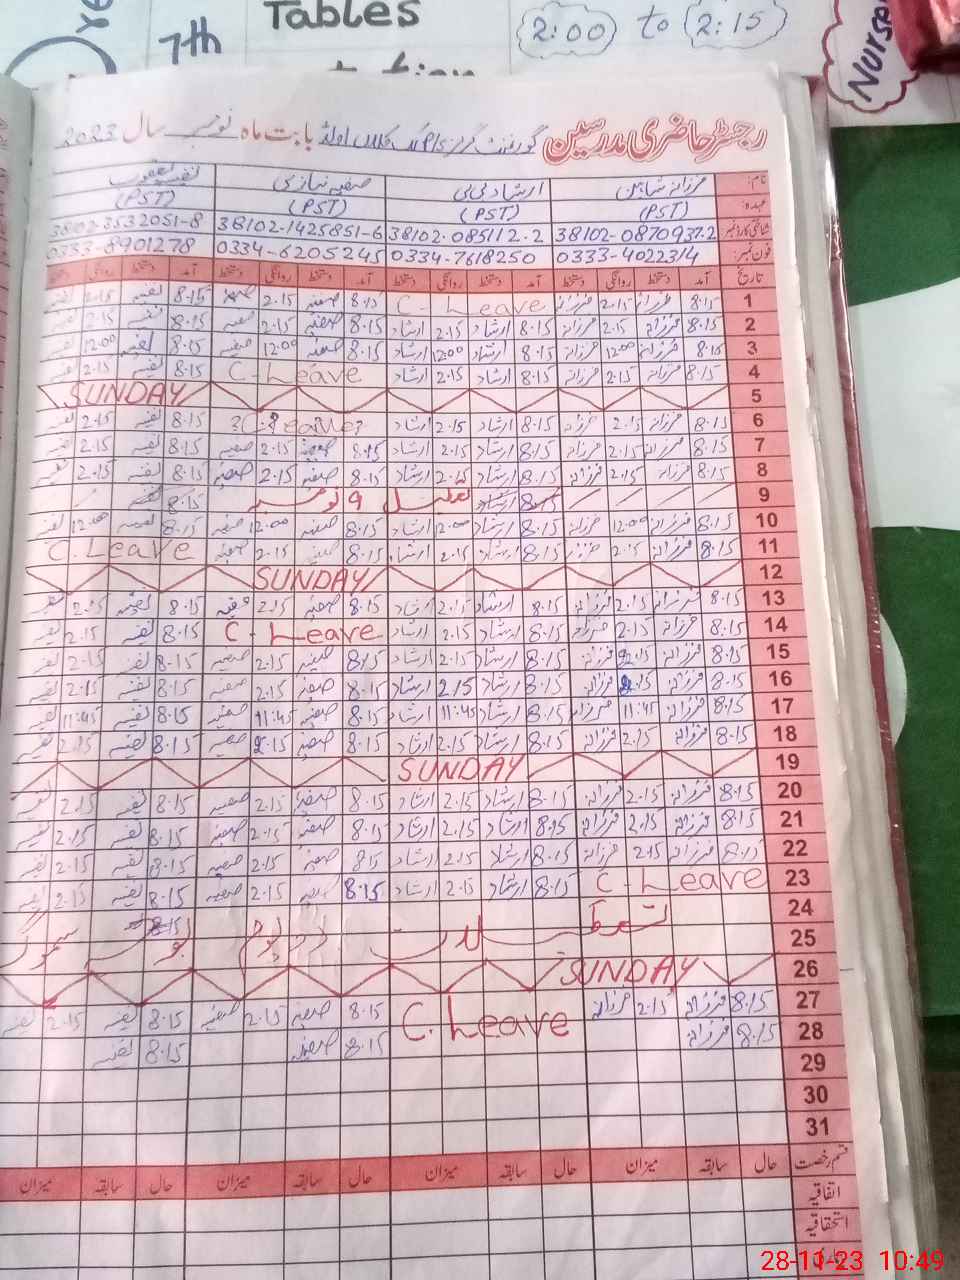 Tables
7th
2:00 to 2:15
Nurse
رجسٹر حاضری مدرسین گورنمنٹ گرلز بابت ماہ نومبر سال 2023
نام: فرزانہ شاہین ارشاد بی بی صفیہ نیازی نفیسہ یعقوب
عہدہ: (PST) (PST) (PST) (PST)
شناختی کارڈ نمبر 38102-0870937-2 38102-085112-2 38102-1425851-6 38102-3532051-8
فون نمبر: 0333-4022314 0334-7618250 0334-6205245 0333-8901278
تاریخ آمد دستخط روانگی دستخط آمد دستخط روانگی دستخط آمد دستخط روانگی دستخط آمد دستخط روانگی دستخط
1 8.15 فرزانہ 2.15 فرزانہ C-Leave 8.15 صفیہ 2.15 صفیہ 8.15 نفیسہ 2.15 نفیسہ
2 8.15 فرزانہ 2.15 فرزانہ 8.15 ارشاد 2.15 ارشاد 8.15 صفیہ 2.15 صفیہ 8.15 نفیسہ 2.15 نفیسہ
3 8.15 فرزانہ 12:00 فرزانہ 8.15 ارشاد 12:00 ارشاد 8.15 صفیہ 12:00 صفیہ 8.15 نفیسہ 12:00 نفیسہ
4 8.15 فرزانہ 2.15 فرزانہ 8.15 ارشاد 2.15 ارشاد C-Leave 8.15 نفیسہ 2.15 نفیسہ
5 SUNDAY
6 8.15 فرزانہ 2.15 فرزانہ 8.15 ارشاد 2.15 ارشاد C.Leave 8.15 نفیسہ 2.15 نفیسہ
7 8.15 فرزانہ 2.15 فرزانہ 8.15 ارشاد 2.15 ارشاد 8.15 صفیہ 2.15 صفیہ 8.15 نفیسہ 2.15 نفیسہ
8 8.15 فرزانہ 2.15 فرزانہ 8.15 ارشاد 2.15 ارشاد 8.15 صفیہ 2.15 صفیہ 8.15 نفیسہ 2.15 نفیسہ
9 8.15 ارشاد تعطیل 9 نومبر 8.15
10 8.15 فرزانہ 12:00 فرزانہ 8.15 ارشاد 12:00 ارشاد 8.15 صفیہ 12:00 صفیہ 8.15 نفیسہ 12:00 نفیسہ
11 8.15 فرزانہ 2.15 فرزانہ 8.15 ارشاد 2.15 ارشاد 8.15 صفیہ 2.15 صفیہ C.Leave
12 SUNDAY
13 8.15 فرزانہ 2.15 فرزانہ 8.15 ارشاد 2.15 ارشاد 8.15 صفیہ 2.15 صفیہ 8.15 نفیسہ 2.15 نفیسہ
14 8.15 فرزانہ 2.15 فرزانہ 8.15 ارشاد 2.15 ارشاد C-Leave 8.15 نفیسہ 2.15 نفیسہ
15 8.15 فرزانہ 2.15 فرزانہ 8.15 ارشاد 2.15 ارشاد 8.15 صفیہ 2.15 صفیہ 8.15 نفیسہ 2.15 نفیسہ
16 8.15 فرزانہ 2.15 فرزانہ 8.15 ارشاد 2.15 ارشاد 8.15 صفیہ 2.15 صفیہ 8.15 نفیسہ 2.15 نفیسہ
17 8.15 فرزانہ 11:45 فرزانہ 8.15 ارشاد 11:45 ارشاد 8.15 صفیہ 11:45 صفیہ 8.15 نفیسہ 11:45 نفیسہ
18 8.15 فرزانہ 2.15 فرزانہ 8.15 ارشاد 2.15 ارشاد 8.15 صفیہ 2.15 صفیہ 8.15 نفیسہ 2.15 نفیسہ
19 SUNDAY
20 8.15 فرزانہ 2.15 فرزانہ 8.15 ارشاد 2.15 ارشاد 8.15 صفیہ 2.15 صفیہ 8.15 نفیسہ 2.15 نفیسہ
21 8.15 فرزانہ 2.15 فرزانہ 8.15 ارشاد 2.15 ارشاد 8.15 صفیہ 2.15 صفیہ 8.15 نفیسہ 2.15 نفیسہ
22 8.15 فرزانہ 2.15 فرزانہ 8.15 ارشاد 2.15 ارشاد 8.15 صفیہ 2.15 صفیہ 8.15 نفیسہ 2.15 نفیسہ
23 C-Leave 8.15 ارشاد 2.15 ارشاد 8.15 صفیہ 2.15 صفیہ 8.15 نفیسہ 2.15 نفیسہ
24 8.15
25 سموگ
26 SUNDAY
27 8.15 فرزانہ 2.15 فرزانہ C.Leave 8.15 صفیہ 2.15 صفیہ 8.15 نفیسہ 2.15 نفیسہ
28 8.15 فرزانہ 8.15 صفیہ 8.15 نفیسہ
29
30
31
قسم رخصت حال سابقہ میزان حال سابقہ میزان حال سابقہ میزان حال سابقہ میزان
اتفاقیہ
استحقاقیہ
28-11-23 10:49